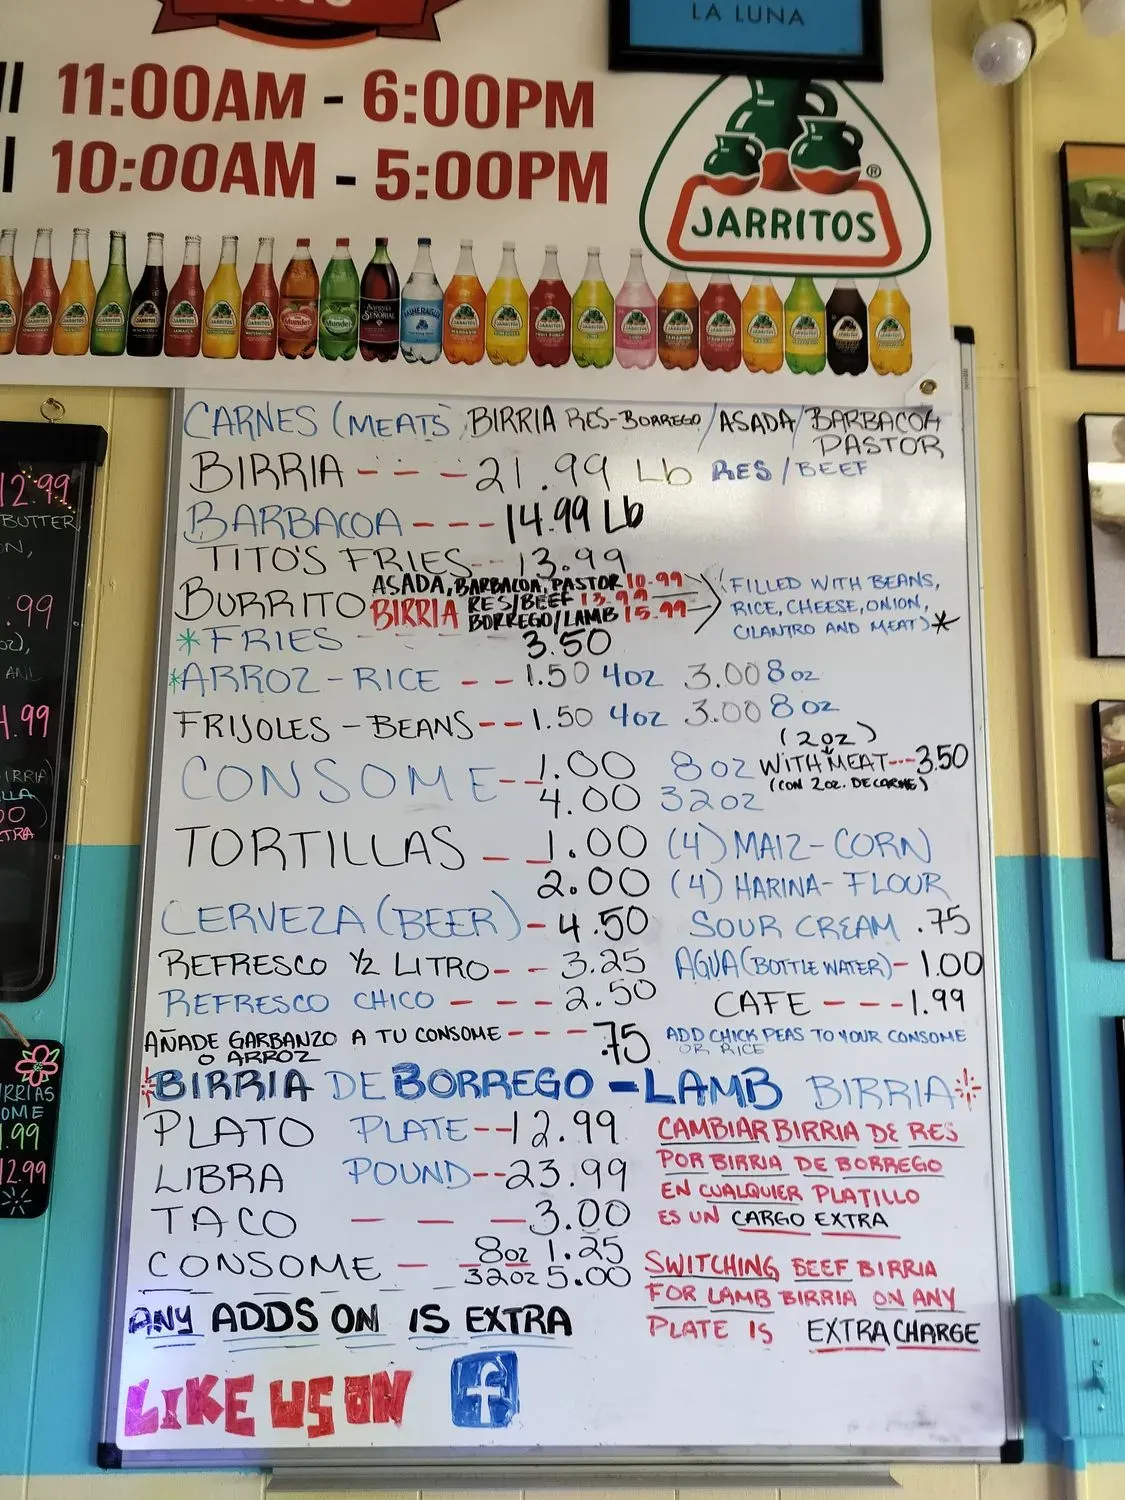 LA LUNA
11:00AM - 6:00PM
10:00AM - 5:00PM
JARRITOS ®
CARNES (MEATS) BIRRIA RES-BORREGO / ASADA / BARBACOA
PASTOR
BIRRIA - - - 21.99 Lb RES / BEEF
BARBACOA - - - 14.99 Lb
TITO'S FRIES - - 13.99
BURRITO ASADA, BARBACOA, PASTOR 10.99
BIRRIA RES/BEEF 13.99
BORREGO/LAMB 15.99
FILLED WITH BEANS,
RICE, CHEESE, ONION,
CILANTRO AND MEAT) *
* FRIES - - - 3.50
* ARROZ - RICE - - 1.50 4oz 3.00 8oz
FRIJOLES - BEANS - - 1.50 4oz 3.00 8oz
CONSOME - - 1.00 8oz WITH MEAT --- 3.50
(2oz)
(CON 2oz. DE CARNE)
4.00 32oz
TORTILLAS - - 1.00 (4) MAIZ - CORN
2.00 (4) HARINA - FLOUR
CERVEZA (BEER) - 4.50 SOUR CREAM .75
REFRESCO 1/2 LITRO - - 3.25 AGUA (BOTTLE WATER) - 1.00
REFRESCO CHICO - - - 2.50 CAFE - - - 1.99
AÑADE GARBANZO A TU CONSOME - - - - .75 ADD CHICK PEAS TO YOUR CONSOME
O ARROZ OR RICE
BIRRIA DE BORREGO - LAMB BIRRIA
PLATO PLATE - - 12.99
LIBRA POUND - - 23.99
TACO - - - 3.00
CONSOME - 8oz 1.25
32oz 5.00
CAMBIAR BIRRIA DE RES
POR BIRRIA DE BORREGO
EN CUALQUIER PLATILLO
ES UN CARGO EXTRA
SWITCHING BEEF BIRRIA
FOR LAMB BIRRIA ON ANY
PLATE IS EXTRA CHARGE
ANY ADDS ON IS EXTRA
LIKE US ON f
12.99
BUTTER
.99
AND
4.99
BIRRIA)
1.99
12.99